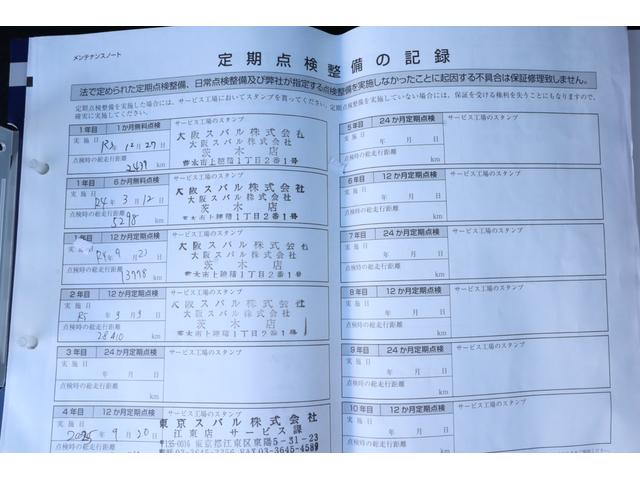 メンテナンスノート
定期点検整備の記録
法で定められた定期点検整備、日常点検整備及び弊社が指定する点検整備を実施しなかったことに起因する不具合は保証修理致しません。
定期点検整備を実施した場合には、サービス工場においてスタンプを貰ってください。定期点検整備を実施していない場合には、保証を受ける権利を失うこともなりますので、
確実に実施してください。
1年目 1か月無料点検 サービス工場のスタンプ
実施日 R3年 12月 27日
点検時の総走行距離
2439 km
大阪スバル株式会社
大阪スバル株式会社
茨木店
茨木市上穂積1丁目2番1号
1年目 6か月無料点検 サービス工場のスタンプ
実施日 R4年 3月 12日
点検時の総走行距離
5298 km
大阪スバル株式会社
大阪スバル株式会社
茨木店
茨木市上穂積1丁目2番1号
1年目 12か月定期点検 サービス工場のスタンプ
R4年 9月 日
点検時の総走行距離
13998 km
大阪スバル株式会社
大阪スバル株式会社
茨木店
茨木市上穂積1丁目2番1号
2年目 12か月定期点検 サービス工場のスタンプ
実施日 R5年 9月 9日
点検時の総走行距離
28410 km
大阪スバル株式会社
大阪スバル株式会社
茨木店
茨木市上穂積1丁目2番1号
3年目 24か月定期点検 サービス工場のスタンプ
実施日 年 月 日
点検時の総走行距離
km
4年目 12か月定期点検 サービス工場のスタンプ
実施日 2025年 9月 20日
点検時の総走行距離
東京スバル株式会社
江東店 サービス課
〒135-0016 東京都江東区東陽5-31-23
03-3645-3256 FAX 03-3645-4589
5年目 24か月定期点検 サービス工場のスタンプ
実施日 年 月 日
点検時の総走行距離
km
6年目 12か月定期点検 サービス工場のスタンプ
実施日 年 月 日
点検時の総走行距離
km
7年目 24か月定期点検 サービス工場のスタンプ
実施日 年 月 日
点検時の総走行距離
km
8年目 12か月定期点検 サービス工場のスタンプ
実施日 年 月 日
点検時の総走行距離
km
9年目 24か月定期点検 サービス工場のスタンプ
実施日 年 月 日
点検時の総走行距離
km
10年目 12か月定期点検 サービス工場のスタンプ
実施日 年 月 日
点検時の総走行距離
km